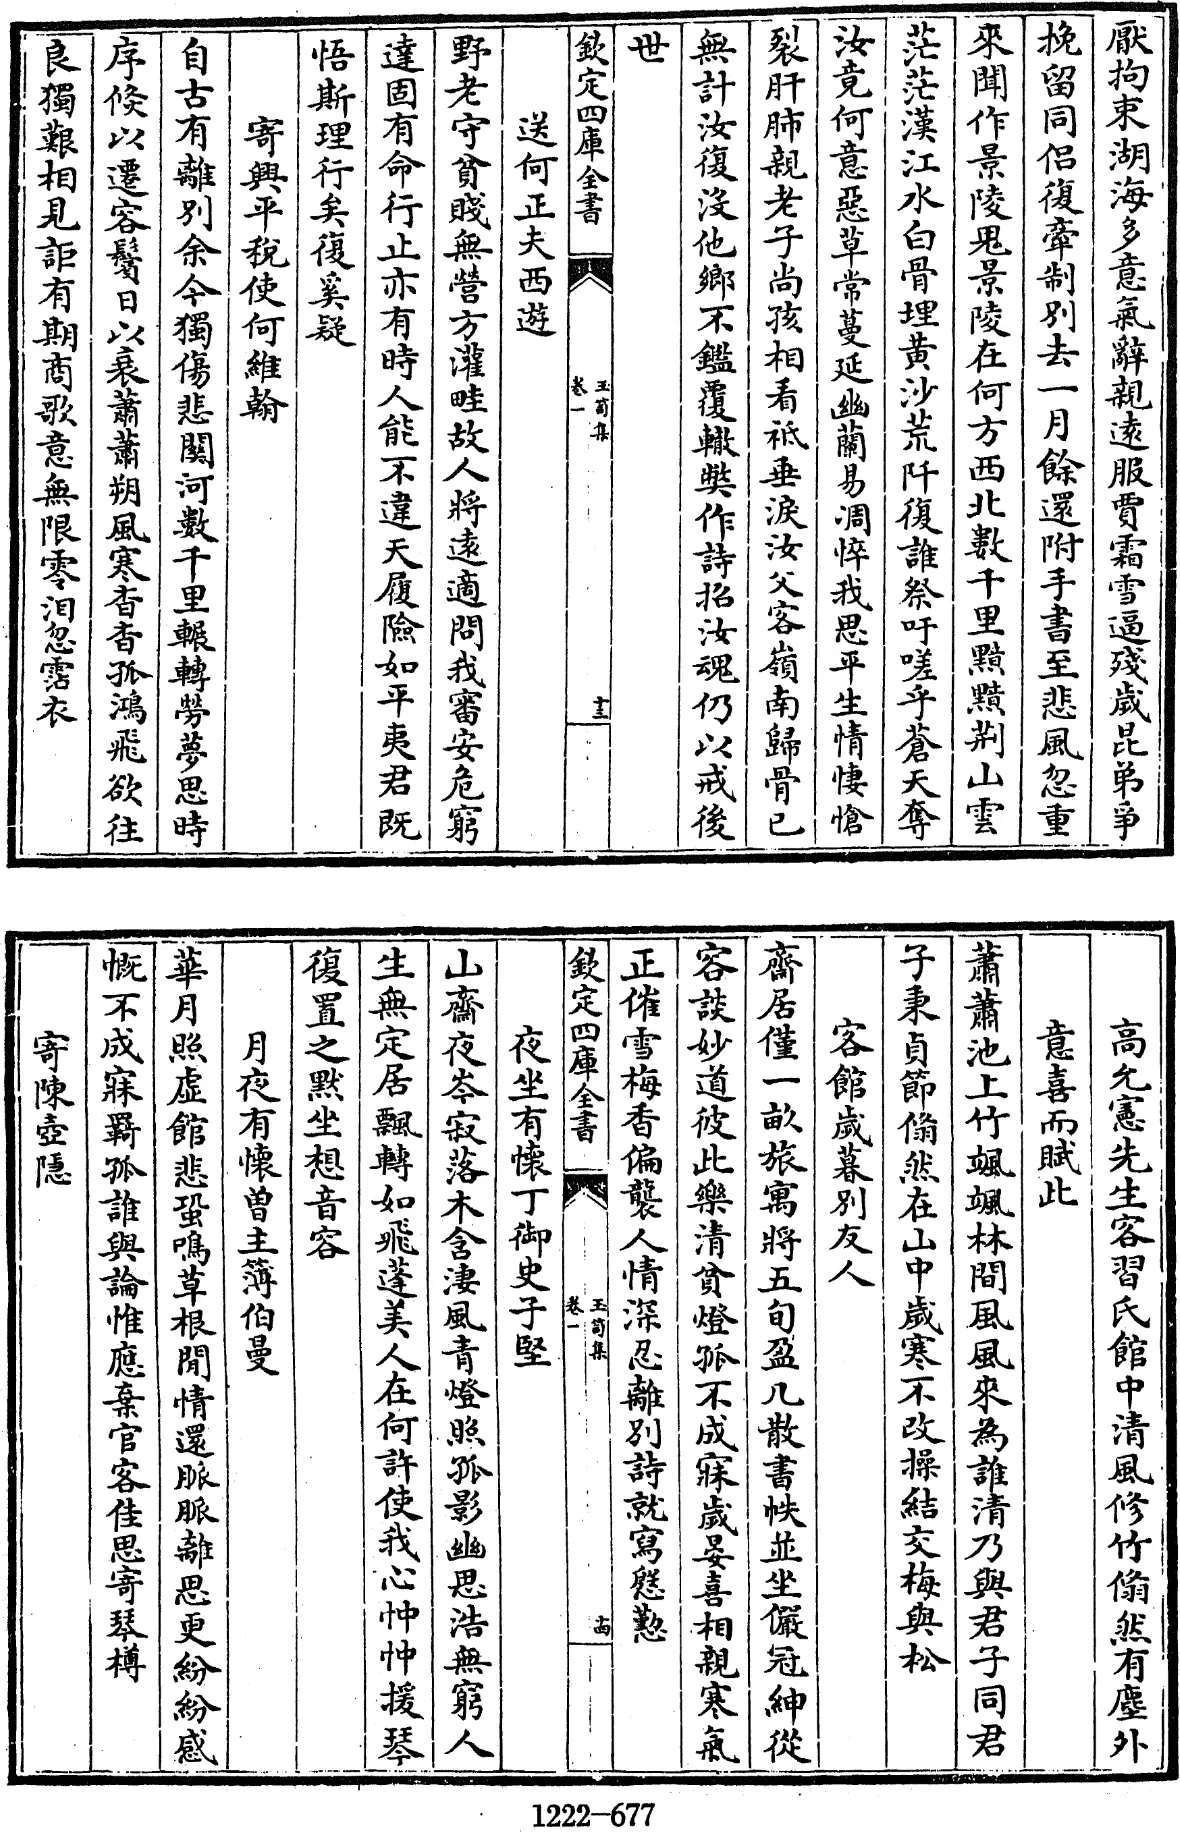 厭拘束湖海多意氣辭親遠服賈霜雪逼殘歲昆弟爭
挽留同侶復牽制別去一月餘還附手書至悲風忽重
來聞作景陵鬼景陵在何方西北數千里黯黯荆山雲
茫茫漢江水白骨埋黄沙荒阡復誰祭吁嗟乎蒼天奪
汝竟何意惡草常蔓延幽蘭易凋悴我思平生情悽愴
裂肝肺親老子尚孩相看祇垂淚汝父客嶺南歸骨已
無計汝復没他鄉不鑑覆轍弊作詩招汝魂仍以戒後
世
欽定四庫全書
玉笥集
卷一
十三
送何正夫西遊
野老守貧賤無營方灌畦故人將遠適問我審安危窮
達固有命行止亦有時人能不違天履險如平夷君既
悟斯理行矣復奚疑
寄興平税使何維翰
自古有離别余今獨傷悲關河數千里輾轉勞夢思時
序倐以遷容鬢日以衰蕭蕭朔風寒杳杳孤鴻飛欲往
良獨艱相見詎有期商歌意無限零泪忽霑衣
高允憲先生客習氏館中清風修竹翛然有塵外
意喜而賦此
蕭蕭池上竹颯颯林間風風來為誰清乃與君子同君
子秉貞節翛然在山中歲寒不改操結交梅與松
客館歲暮别友人
齋居僅一畝旅寓將五旬盈几散書帙並坐儼冠紳從
容談妙道彼此樂清貧燈孤不成寐歲晏喜相親寒氣
正催雪梅香偏襲人情深忍離别詩就寫慇懃
欽定四庫全書
玉笥集
卷一
十四
夜坐有懷丁御史子堅
山齋夜岑寂落木含凄風青燈照孤影幽思浩無窮人
生無定居飄轉如飛蓬美人在何許使我心忡忡援琴
復置之默坐想音容
月夜有懷曽主簿伯曼
華月照虚館悲蛩鳴草根閒情還脈脈離思更紛紛感
慨不成寐羇孤誰與論惟應棄官客佳思寄琴樽
寄陳壺隱
1222-677